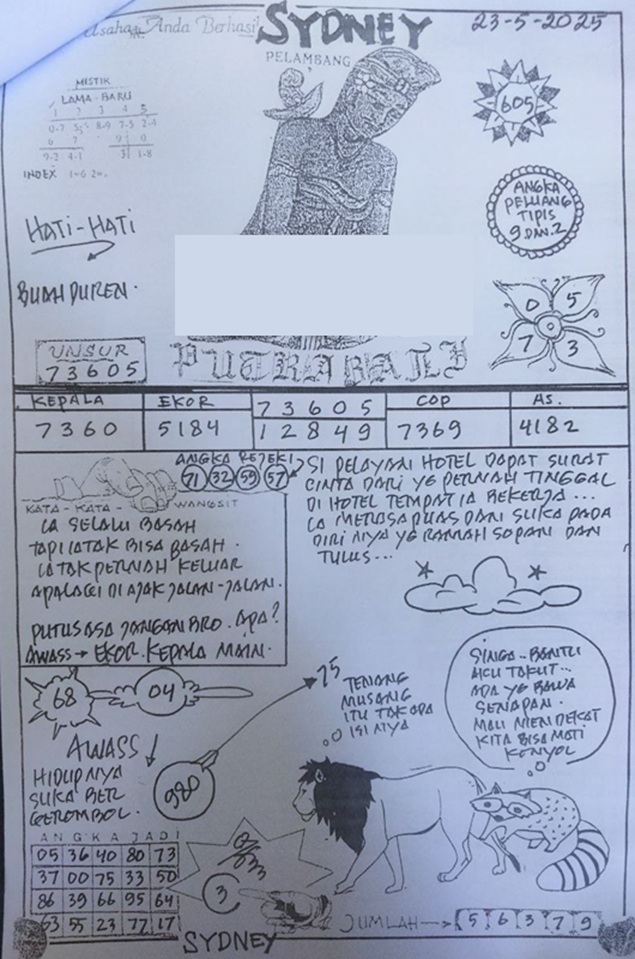 Usaha Anda Berhasil
SYDNEY
23-5-2025
PELAMBANG
MISTIK
LAMA - BARU
1 2 3 4 5
0-7 8-9 7-3 2-4
6 7 9 0
9-2 4-1 3 1-8
INDEX
605
ANGKA
PELUANG
TIPIS
9 DAN 2
HATI-HATI
BUAH DUREN.
0 5
7 3
UNSUR
73605
PUTRA BALI
KEPALA EKOR 73605 COP AS.
7360 5184 12849 7369 4182
ANGKA REJEKI
71 32 59 57
KATA - KATA - WANGSIT
IA SELALU BASAH
TAPI TAK BISA BASAH.
IA TAK PERNAH KELUAR
APALAGI DI AJAK JALAN-JALAN.
PUTUS ASA JANGAN BRO. APA?
AWASS → EKOR. KEPALA MAIN.
SI PELAYAN HOTEL DAPAT SURAT
CINTA DARI YG PERNAH TINGGAL
DI HOTEL TEMPAT IA BEKERJA...
IA MERASA PUAS DAN SUKA PADA
DIRI NYA YG RAMAH SOPAN DAN
TULUS...
68 04
75
TENANG
MUSANG
ITU TAK ADA
ISI NYA
SINGA - BANTU
AKU TAKUT...
ADA YG BAWA
SENAPAN.
MAU MENDEKAT
KITA BISA MATI
KONYOL
AWASS
HIDUP NYA
SUKA BER
GEROMBOL.
980
ANGKA JADI
05 36 40 80 73
37 00 75 33 50
86 39 66 95 64
63 55 23 77 17
3
JUMLAH → 5 6 3 7 9
SYDNEY